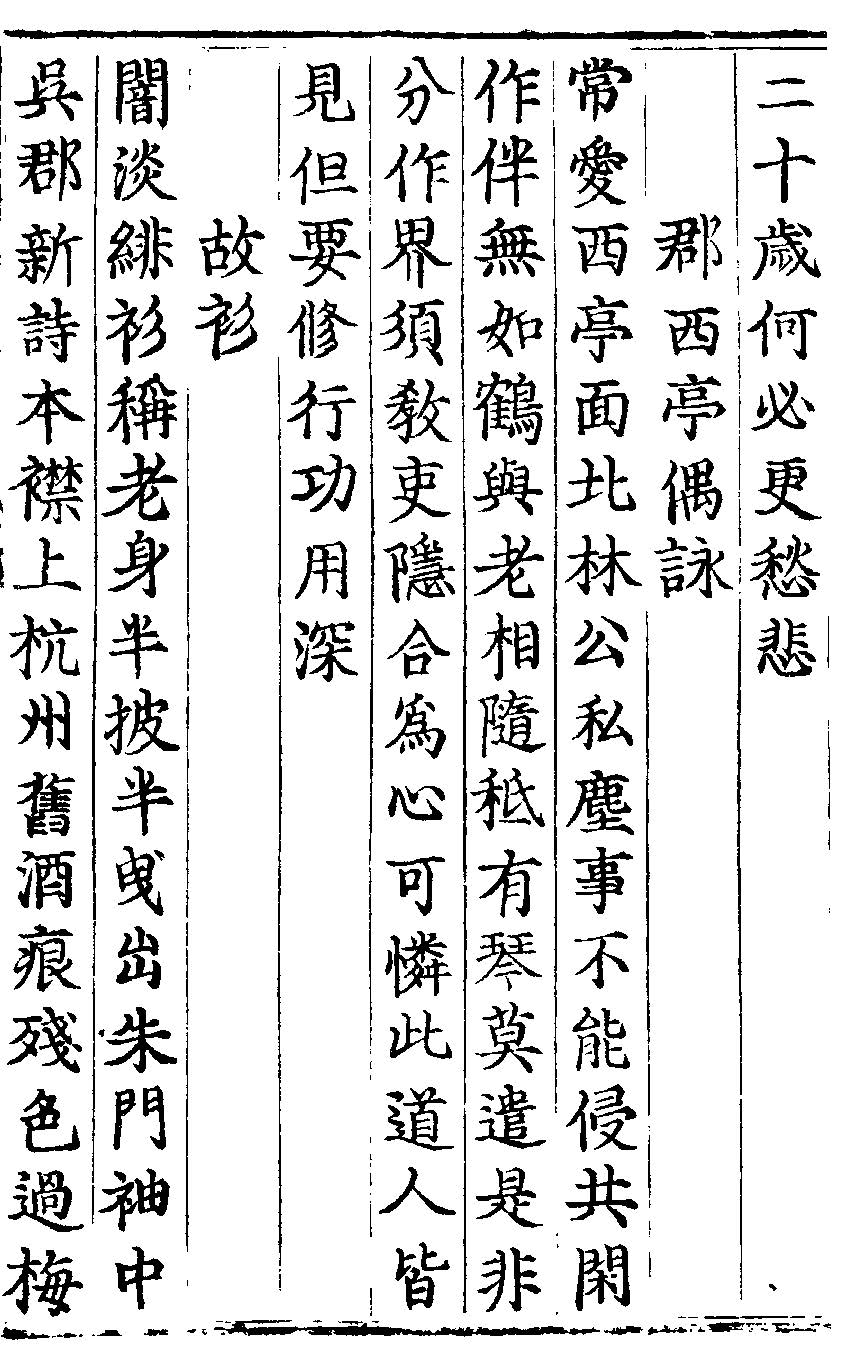 二十歲何必更愁悲
郡西亭偶詠
常愛西亭面北林公私塵事不能侵共閑
作伴無如鶴與老相隨秪有琴莫遣是非
分作界須敎吏隱合爲心可憐此道人皆
見但要修行功用深
故衫
闇淡緋衫稱老身半披半曵出朱門袖中
吳郡新詩本襟上杭州舊酒痕殘色過梅